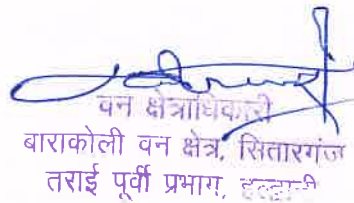 वन क्षेत्राधिकारी
बाराकोली वन क्षेत्र, सितारगंज
तराई पूर्वी प्रभाग, हल्द्वानी